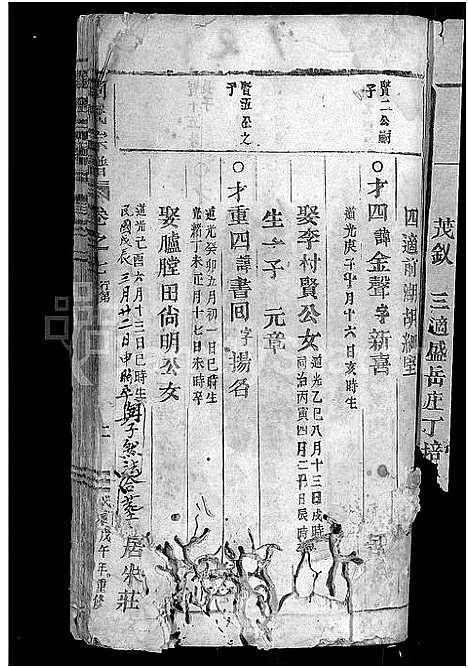 茂欽 三適盛岳庄丁
四適前湖胡綱堅
賢二公嗣子
才四諱金聲字新喜
道光庚子年十月十六日亥時生
娶李村賢公女
道光乙巳八月十三日戌時
同治丙寅四月二十日辰時
生一子 元章
賢五公之子
才重四諱書回字揚名
道光癸卯五月初一日巳時生
光緒丁未正月十七日未時卒
娶臚膛田尙明公女
道光己酉六月十三日巳時生
民國戊辰三月廿二日申時卒
與子 居朱莊
宗譜 卷之七 行第
二
戊午年重修